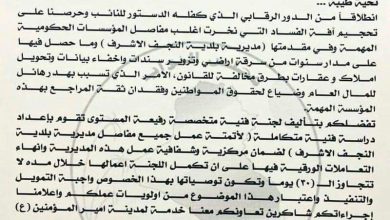 تحية طيبة ...
انطلاقاً من الدور الرقابي الذي كفله الدستور للنائب وحرصنا على
تحجيم آفة الفساد التي نخرت اغلب مفاصل المؤسسات الحكومية
المهمة وفي مقدمتها ( مديرية بلدية النجف الاشرف ) وما حصل فيها
على مدار سنوات من سرقة اراضي وتزوير سندات واخفاء بيانات وتحويل
املاك و عقارات بطرق مخالفة للقانون، الأمر الذي تسبب بهدر هائل
للمال العام وضياع لحقوق المواطنين وفقدان ثقة المراجع بهذه
المؤسسة المهمة
تفضلكم بتأليف لجنة فنية متخصصة رفيعة المستوى تقوم بإعداد
دراسة فنية متكاملة ( لأتمتة عمل جميع مفاصل مديرية بلدية
النجف الاشرف ) لضمان مركزية وشفافية عمل هذه المديرية وانهاء
التعاملات الورقية فيها على ان تكمل اللجنة اعمالها خلال مده لا
تتجاوز الـ (٣٠) يوما وتكون توصياتها بهذا الخصوص واجبة التمويل
والتنفيذ واعتبار هذا الموضوع من اولويات عملكم واعلامنا
جراءاتكم شاكرين تعاونكم معنا خدمة لمدينة امير المؤمنين (ع)